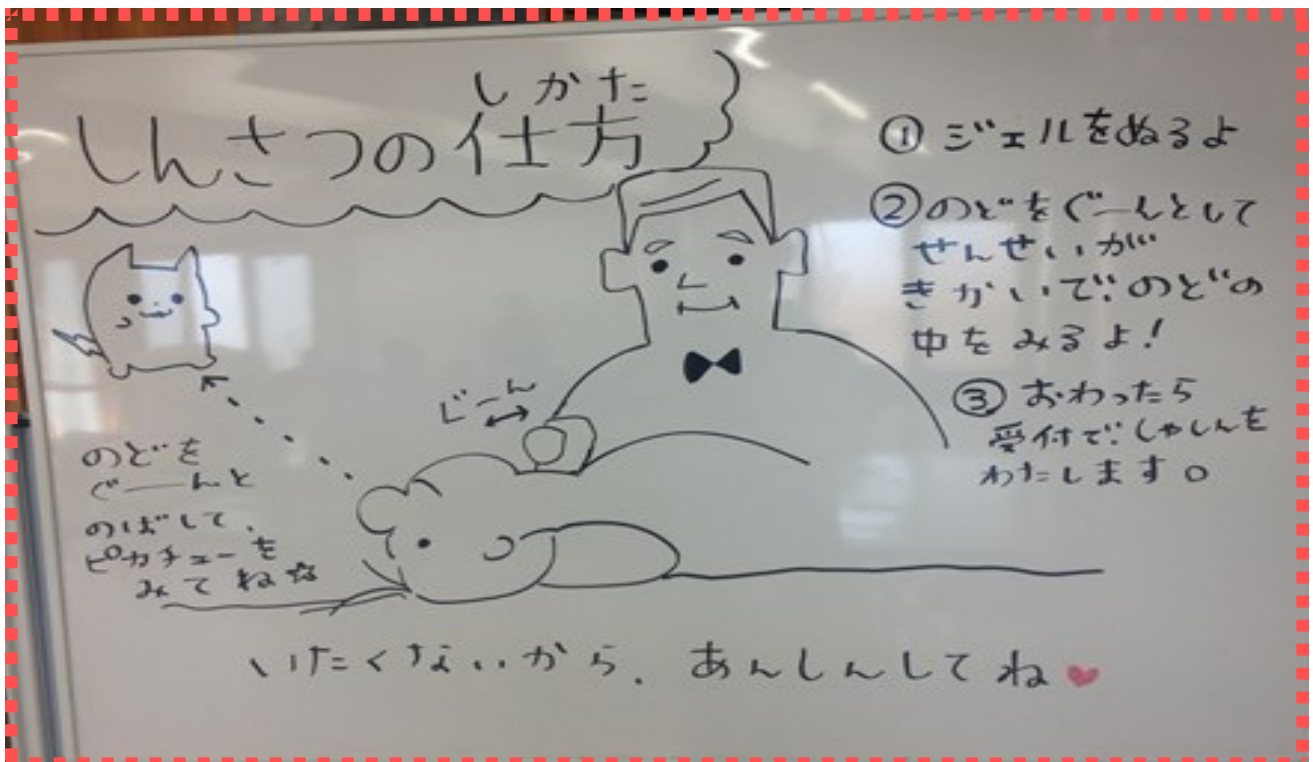 しかた
しんさつの仕方
① ジェルをぬるよ
② のどをぐーんとして
せんせいが
きかいで、のどの
中をみるよ！
③ おわったら
受付で、しゃしんを
わたします。
じーん
のどを
ぐーんと
のばして、
ピカチューを
みてね☆
いたくないから、あんしんしてね♥